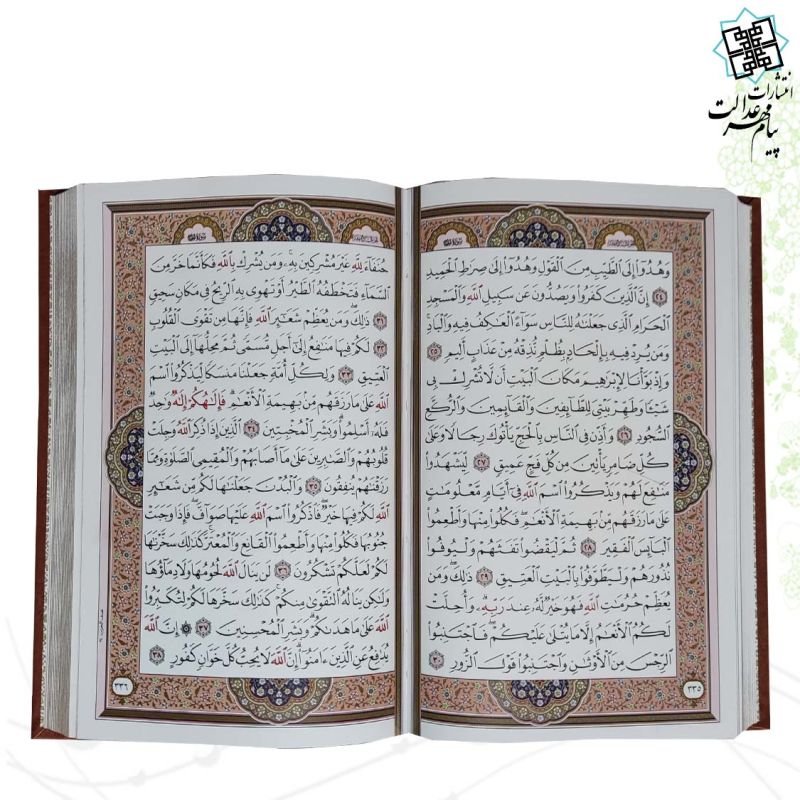 انتشارات
پیام مهر عدالت
وَهُدُوٓا۟ إِلَى ٱلطَّيِّبِ مِنَ ٱلْقَوْلِ وَهُدُوٓا۟ إِلَىٰ صِرَٰطِ ٱلْحَمِيدِ
٢٤ إِنَّ ٱلَّذِينَ كَفَرُوا۟ وَيَصُدُّونَ عَن سَبِيلِ ٱللَّهِ وَٱلْمَسْجِدِ
ٱلْحَرَامِ ٱلَّذِى جَعَلْنَٰهُ لِلنَّاسِ سَوَآءً ٱلْعَٰكِفُ فِيهِ وَٱلْبَادِ ۚ
وَمَن يُرِدْ فِيهِ بِإِلْحَادٍۭ بِظُلْمٍ نُّذِقْهُ مِنْ عَذَابٍ أَلِيمٍ ٢٥
وَإِذْ بَوَّأْنَا لِإِبْرَٰهِيمَ مَكَانَ ٱلْبَيْتِ أَن لَّا تُشْرِكْ بِى
شَيْـًٔا وَطَهِّرْ بَيْتِىَ لِلطَّآئِفِينَ وَٱلْقَآئِمِينَ وَٱلرُّكَّعِ
ٱلسُّجُودِ ٢٦ وَأَذِّن فِى ٱلنَّاسِ بِٱلْحَجِّ يَأْتُوكَ رِجَالًا وَعَلَىٰ
كُلِّ ضَامِرٍ يَأْتِينَ مِن كُلِّ فَجٍّ عَمِيقٍ ٢٧ لِّيَشْهَدُوا۟
مَنَٰفِعَ لَهُمْ وَيَذْكُرُوا۟ ٱسْمَ ٱللَّهِ فِىٓ أَيَّامٍ مَّعْلُومَٰتٍ
عَلَىٰ مَا رَزَقَهُم مِّنۢ بَهِيمَةِ ٱلْأَنْعَٰمِ ۖ فَكُلُوا۟ مِنْهَا وَأَطْعِمُوا۟
ٱلْبَآئِسَ ٱلْفَقِيرَ ٢٨ ثُمَّ لْيَقْضُوا۟ تَفَثَهُمْ وَلْيُوفُوا۟
نُذُورَهُمْ وَلْيَطَّوَّفُوا۟ بِٱلْبَيْتِ ٱلْعَتِيقِ ٢٩ ذَٰلِكَ وَمَن
يُعَظِّمْ حُرُمَٰتِ ٱللَّهِ فَهُوَ خَيْرٌ لَّهُۥ عِندَ رَبِّهِۦ ۗ وَأُحِلَّتْ
لَكُمُ ٱلْأَنْعَٰمُ إِلَّا مَا يُتْلَىٰ عَلَيْكُمْ ۖ فَٱجْتَنِبُوا۟
ٱلرِّجْسَ مِنَ ٱلْأَوْثَٰنِ وَٱجْتَنِبُوا۟ قَوْلَ ٱلزُّورِ ٣٠
٣٣٥
حُنَفَآءَ لِلَّهِ غَيْرَ مُشْرِكِينَ بِهِۦ ۚ وَمَن يُشْرِكْ بِٱللَّهِ فَكَأَنَّمَا خَرَّ مِنَ
ٱلسَّمَآءِ فَتَخْطَفُهُ ٱلطَّيْرُ أَوْ تَهْوِى بِهِ ٱلرِّيحُ فِى مَكَانٍ سَحِيقٍ
٣١ ذَٰلِكَ وَمَن يُعَظِّمْ شَعَٰٓئِرَ ٱللَّهِ فَإِنَّهَا مِن تَقْوَى ٱلْقُلُوبِ
٣٢ لَكُمْ فِيهَا مَنَٰفِعُ إِلَىٰٓ أَجَلٍ مُّسَمًّى ثُمَّ مَحِلُّهَآ إِلَى ٱلْبَيْتِ
ٱلْعَتِيقِ ٣٣ وَلِكُلِّ أُمَّةٍ جَعَلْنَا مَنسَكًا لِّيَذْكُرُوا۟ ٱسْمَ
ٱللَّهِ عَلَىٰ مَا رَزَقَهُم مِّنۢ بَهِيمَةِ ٱلْأَنْعَٰمِ ۗ فَإِلَٰهُكُمْ إِلَٰهٌ وَٰحِدٌ
فَلَهُۥٓ أَسْلِمُوا۟ ۗ وَبَشِّرِ ٱلْمُخْبِتِينَ ٣٤ ٱلَّذِينَ إِذَا ذُكِرَ ٱللَّهُ وَجِلَتْ
قُلُوبُهُمْ وَٱلصَّٰبِرِينَ عَلَىٰ مَآ أَصَابَهُمْ وَٱلْمُقِيمِى ٱلصَّلَوٰةِ وَمِمَّا
رَزَقْنَٰهُمْ يُنفِقُونَ ٣٥ وَٱلْبُدْنَ جَعَلْنَٰهَا لَكُم مِّن شَعَٰٓئِرِ
ٱللَّهِ لَكُمْ فِيهَا خَيْرٌ ۖ فَٱذْكُرُوا۟ ٱسْمَ ٱللَّهِ عَلَيْهَا صَوَآفَّ ۖ فَإِذَا وَجَبَتْ
جُنُوبُهَا فَكُلُوا۟ مِنْهَا وَأَطْعِمُوا۟ ٱلْقَانِعَ وَٱلْمُعْتَرَّ ۚ كَذَٰلِكَ سَخَّرْنَٰهَا
لَكُمْ لَعَلَّكُمْ تَشْكُرُونَ ٣٦ لَن يَنَالَ ٱللَّهَ لُحُومُهَا وَلَا دِمَآؤُهَا
وَلَٰكِن يَنَالُهُ ٱلتَّقْوَىٰ مِنكُمْ ۚ كَذَٰلِكَ سَخَّرَهَا لَكُمْ لِتُكَبِّرُوا۟
ٱللَّهَ عَلَىٰ مَا هَدَىٰكُمْ ۗ وَبَشِّرِ ٱلْمُحْسِنِينَ ٣٧ ۞ إِنَّ ٱللَّهَ
يُدَٰفِعُ عَنِ ٱلَّذِينَ ءَامَنُوٓا۟ ۗ إِنَّ ٱللَّهَ لَا يُحِبُّ كُلَّ خَوَّانٍ كَفُورٍ ٣٨
٣٣٦